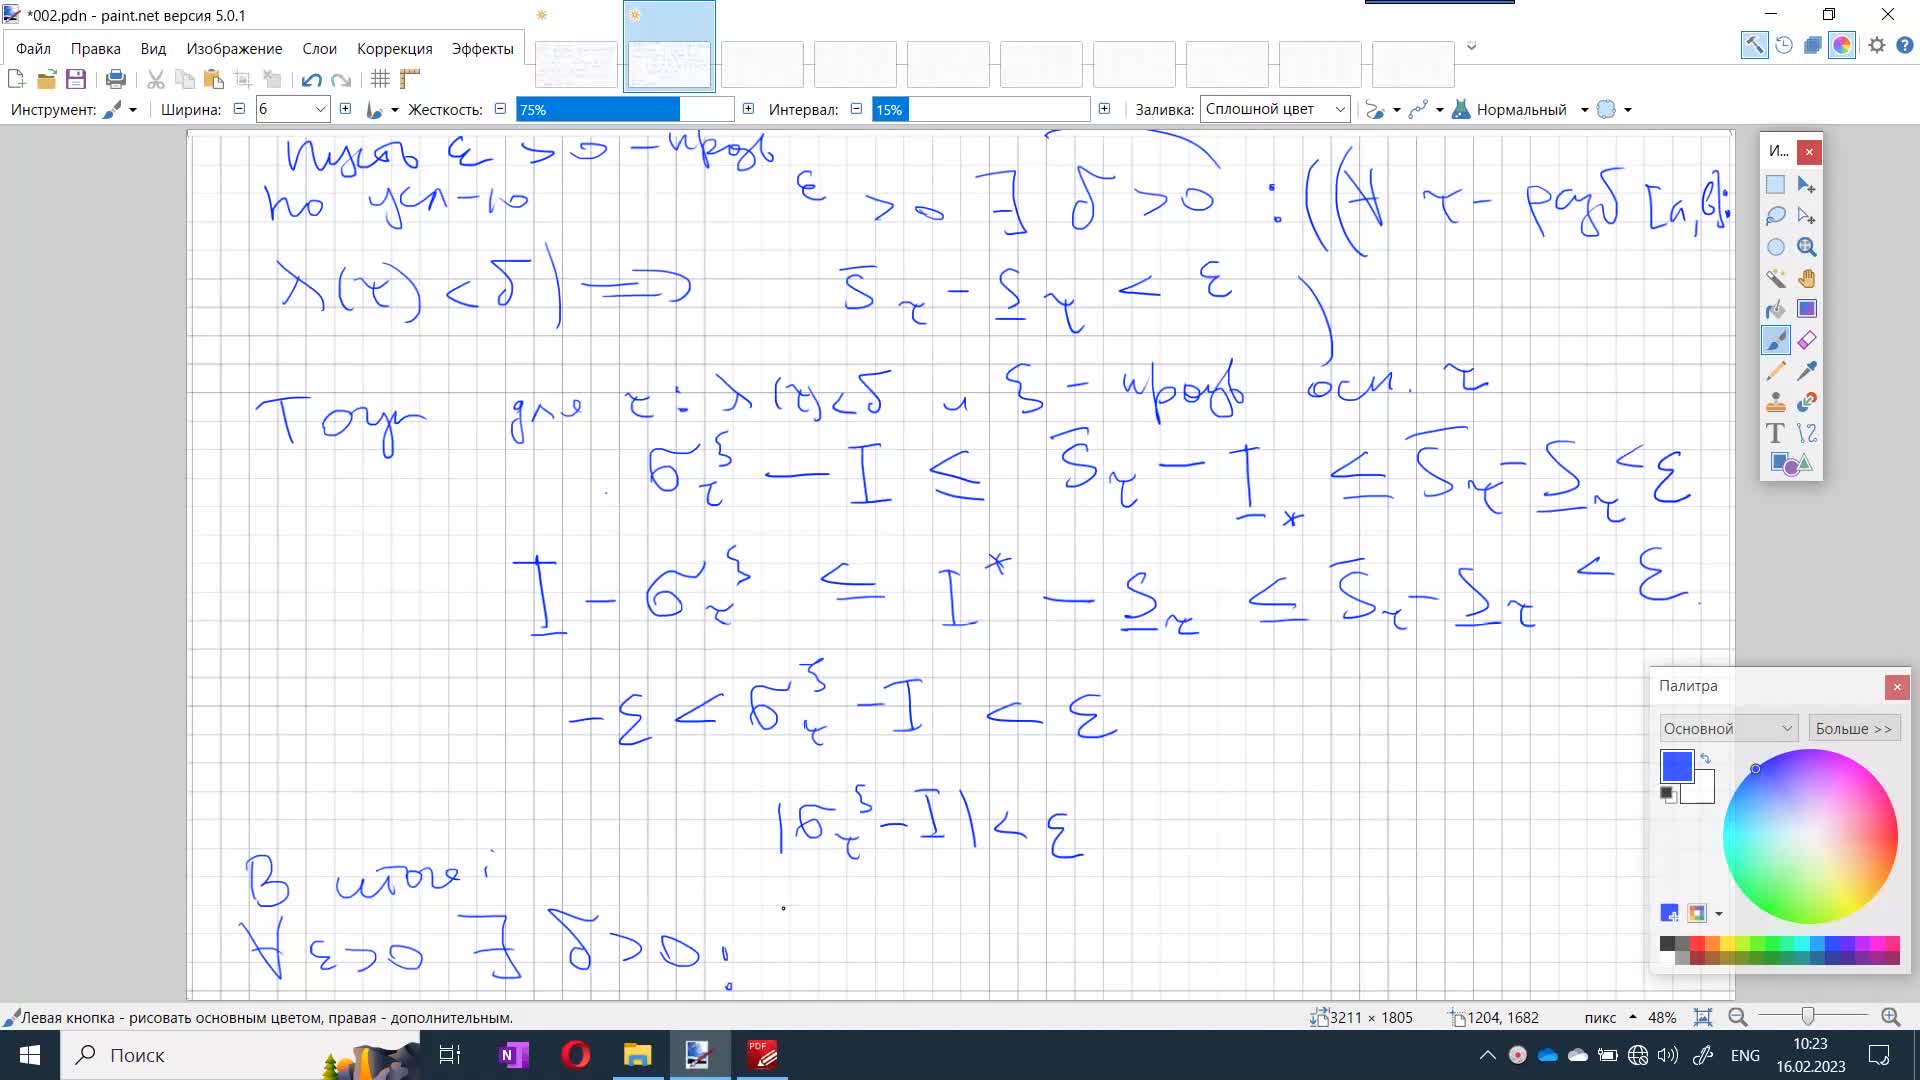 *002.pdn - paint.net версия 5.0.1
Файл Правка Вид Изображение Слои Коррекция Эффекты
Инструмент: Ширина: 6 Жесткость: 75% Интервал: 15% Заливка: Сплошной цвет Нормальный
И...
Пусть ε > 0 – произв
по усл-ю ε > 0 ∃ δ > 0 : ((∀ τ – разб [a,b]:
λ(τ) < δ) ⟹ S̅_τ - S̲_τ < ε )
Тогда для τ: λ(τ) < δ и ξ – произв осн. τ
σ_τ^ξ − I ≤ S̅_τ − I_* ≤ S̅_τ − S̲_τ < ε
I − σ_τ^ξ ≤ I^* − S̲_τ ≤ S̅_τ − S̲_τ < ε.
−ε < σ_τ^ξ − I < ε
|σ_τ^ξ − I| < ε
В итоге:
∀ ε>0 ∃ δ>0 :
Палитра
Основной Больше >>
Левая кнопка - рисовать основным цветом, правая - дополнительным. 3211 × 1805 1204, 1682 пикс 48%
Поиск PDF ENG 10:23
16.02.2023